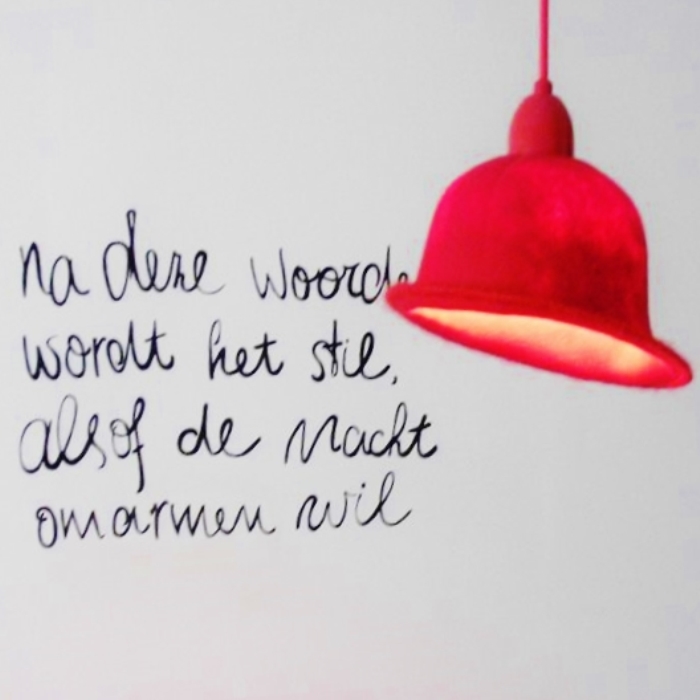 na deze woorde
wordt het stil,
alsof de nacht
omarmen wil